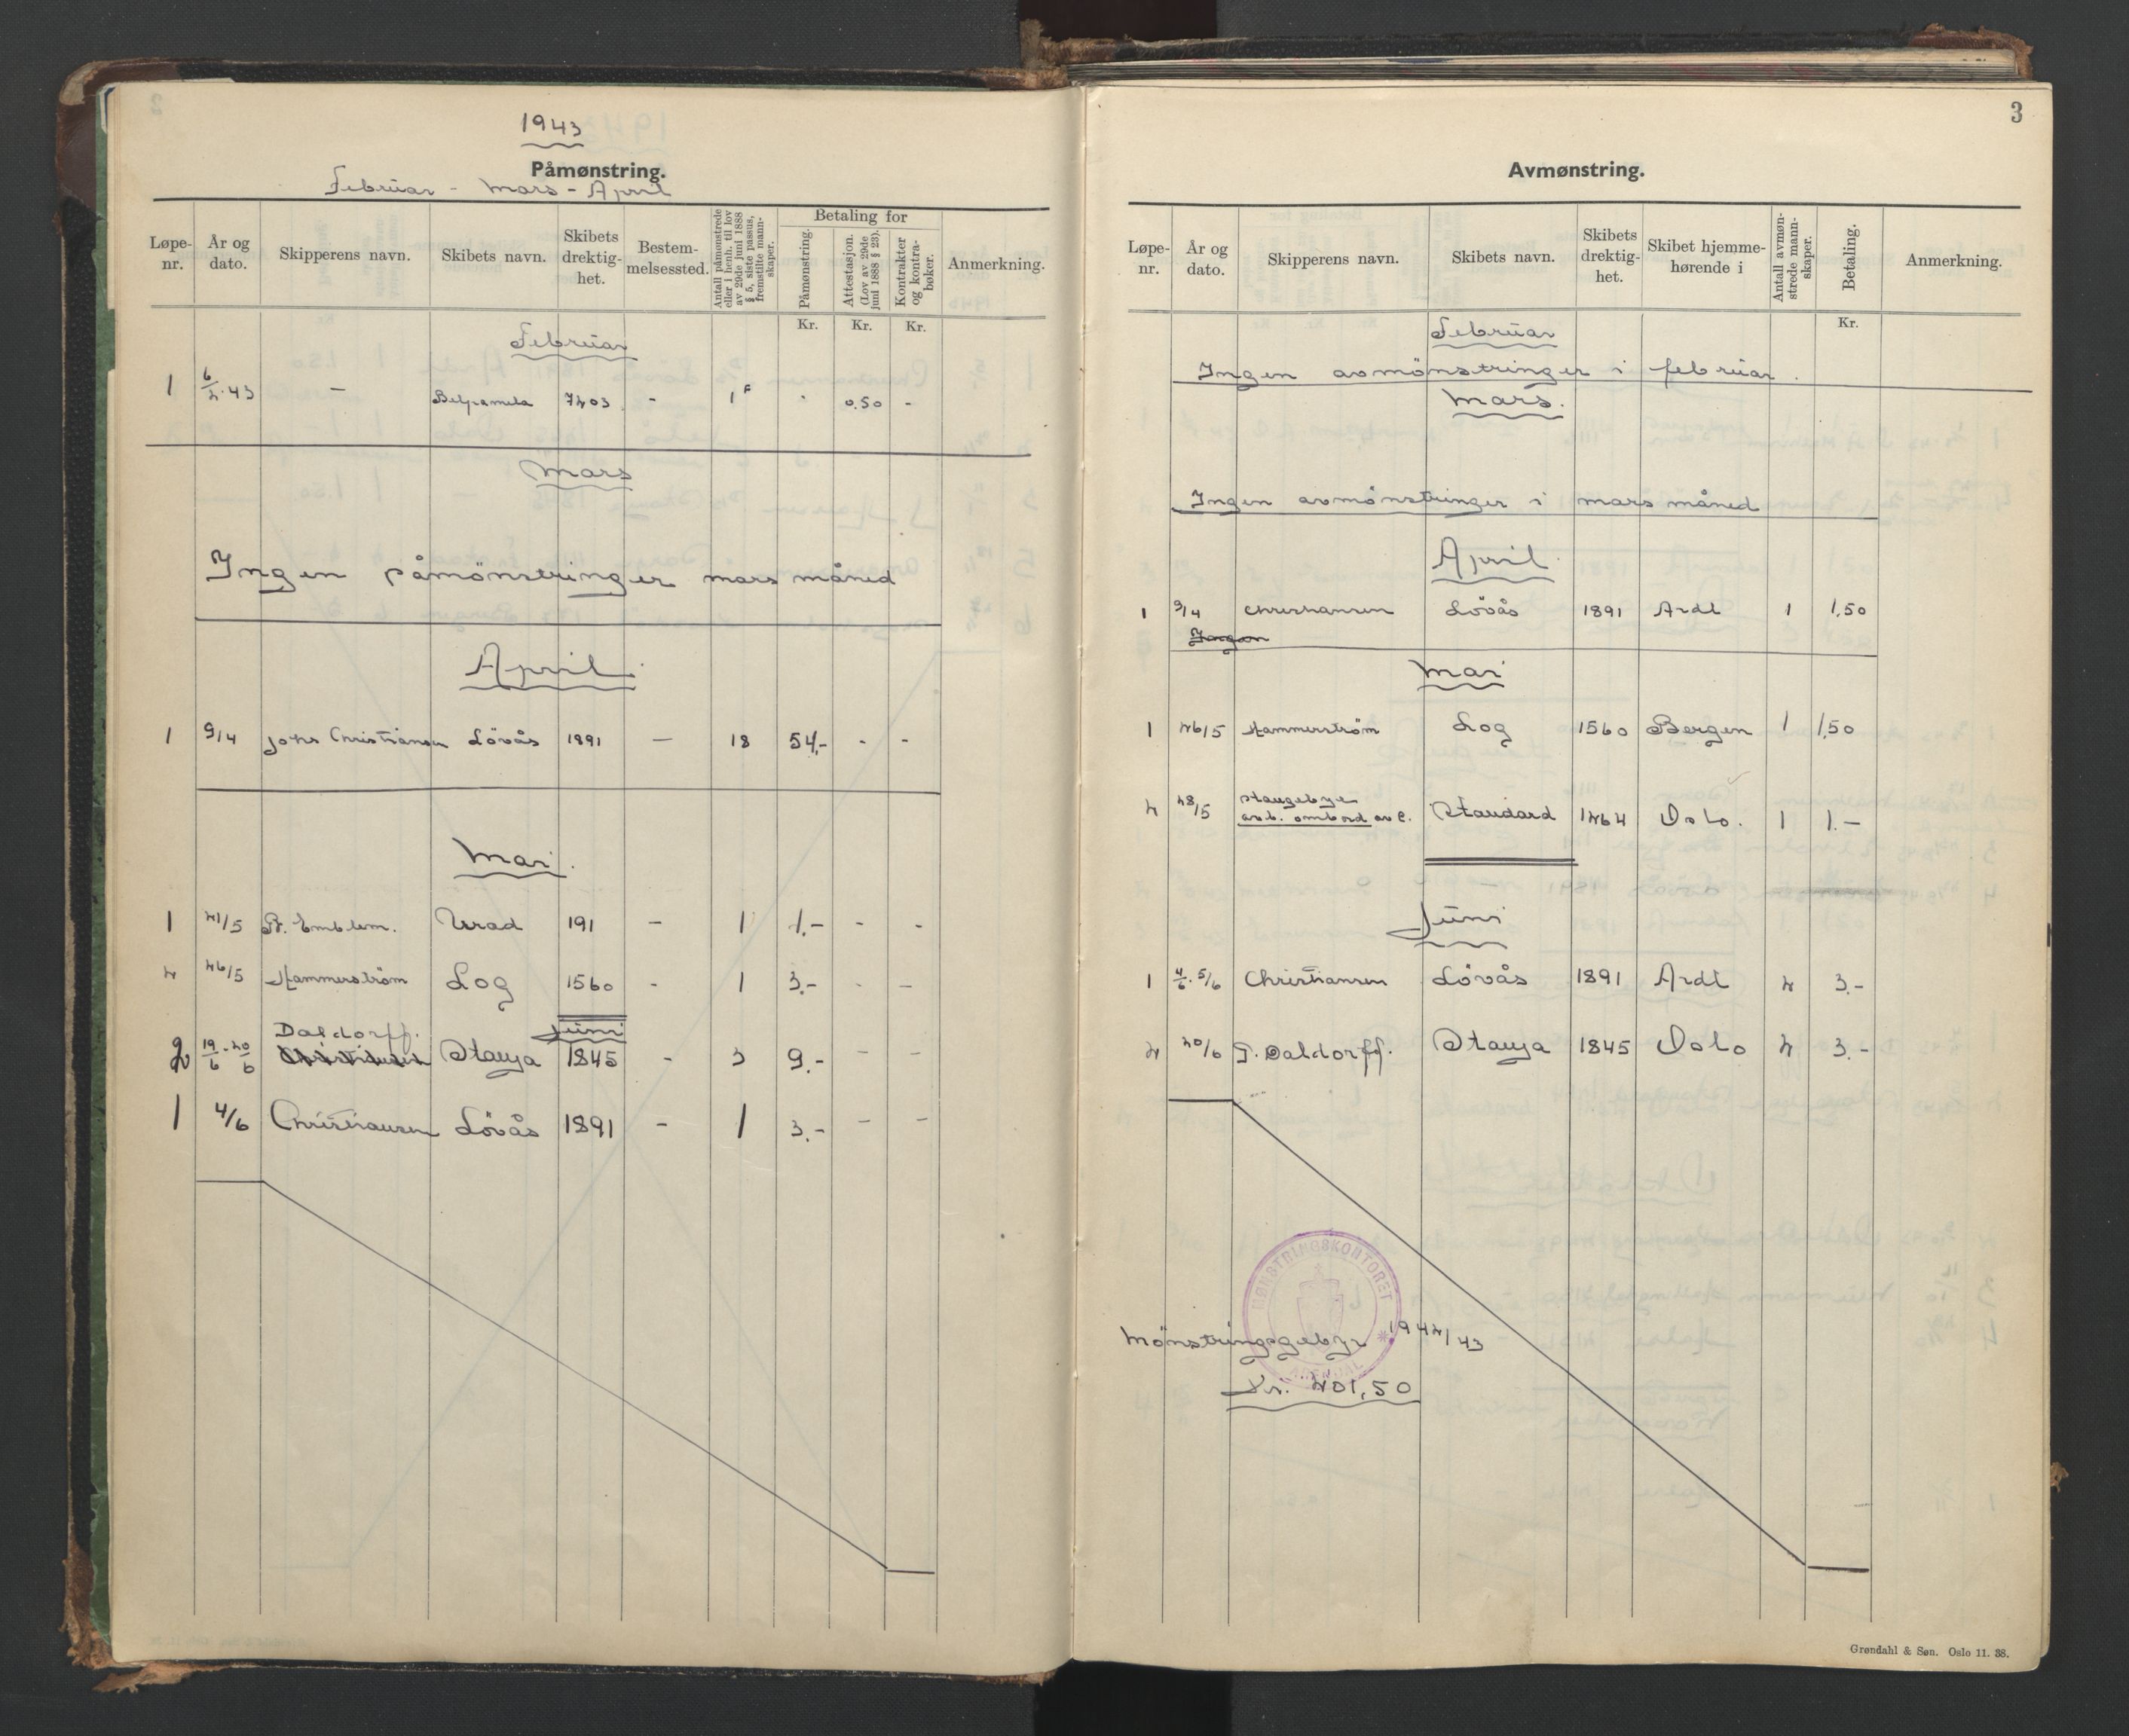 1943
Påmønstring.
Februar - Mars - April
Løpe-nr. År og dato. Skipperens navn. Skibets navn. Skibets drektig-het. Bestem-melsessted. Antall påmønstrede eller i henh. til lov av 29de juni 1888 § 5, siste passus, fremstilte mann-skaper. Betaling for Påmønstring. Attestasjon. (Lov av 29de juni 1888 § 23). Kontrakter og kontra-bøker. Anmerkning.
Kr. Kr. Kr.
Februar
1 6/2.43 — Belpamela 7203 - 1 F · 0.50 -
Mars
Ingen påmönstringer mars måned
April
1 9/4 Johs Christiansen Lövås 1891 — 18 54,- - -
Mai.
1 21/5 P. Emblem. Urad 191 — 1 1.- - -
2 26/5 Hammerström Log 1560 - 1 3.- - -
Juni
Daldorff.
2 19/6-20/6 Stanja 1845 - 3 9.- - -
1 4/6 Christiansen Lövås 1891 - 1 3.- - -
3
Avmønstring.
Løpe-nr. År og dato. Skipperens navn. Skibets navn. Skibets drektig-het. Skibet hjemme-hørende i Antall avmøn-strede mann-skaper. Betaling. Anmerkning.
Kr.
Februar
Ingen avmönstringer i februar.
Mars.
Ingen avmönstringer i mars måned
April
1 9/4 Christiansen Lövås 1891 Ardl 1 1,50
Ingen
Mai
1 26/5 Hammerström Log 1560 Bergen 1 1,50
2 28/5 Haugebye Standard 1264 Oslo. 1 1.-
arb. ombord av C.
Juni
1 4/6. 5/6 Christiansen Lövås 1891 Ardl 2 3.-
2 20/6 P. Daldorff. Stanja 1845 Oslo 2 3.-
MØNSTRINGSKONTORET
ARENDAL
Mönstringsgebyr 1942/43
Kr. 201,50
Grøndahl & Søn. Oslo 11. 38.